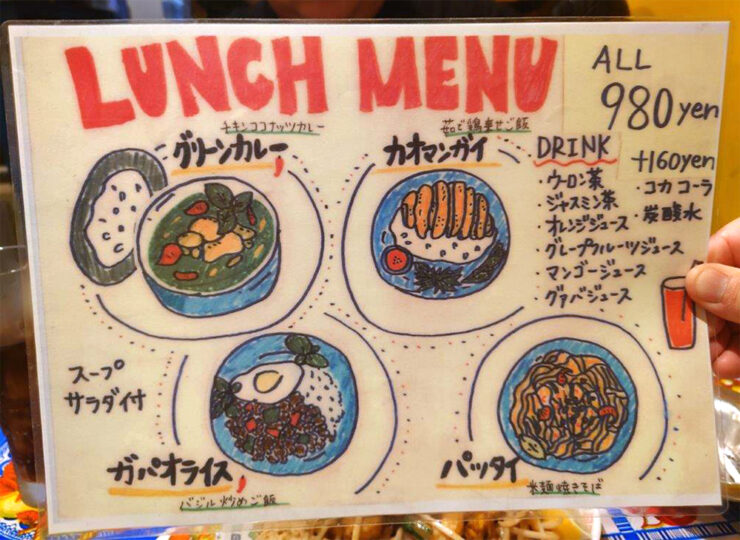 LUNCH MENU
ALL
980yen
チキンココナッツカレー
グリーンカレー
茹で鶏乗せご飯
カオマンガイ
DRINK +160yen
・ウーロン茶
・ジャスミン茶
・オレンジジュース
・グレープフルーツジュース
・マンゴージュース
・グァバジュース
・コカコーラ
・炭酸水
スープ
サラダ付
ガパオライス
バジル炒めご飯
パッタイ
米麺焼きそば